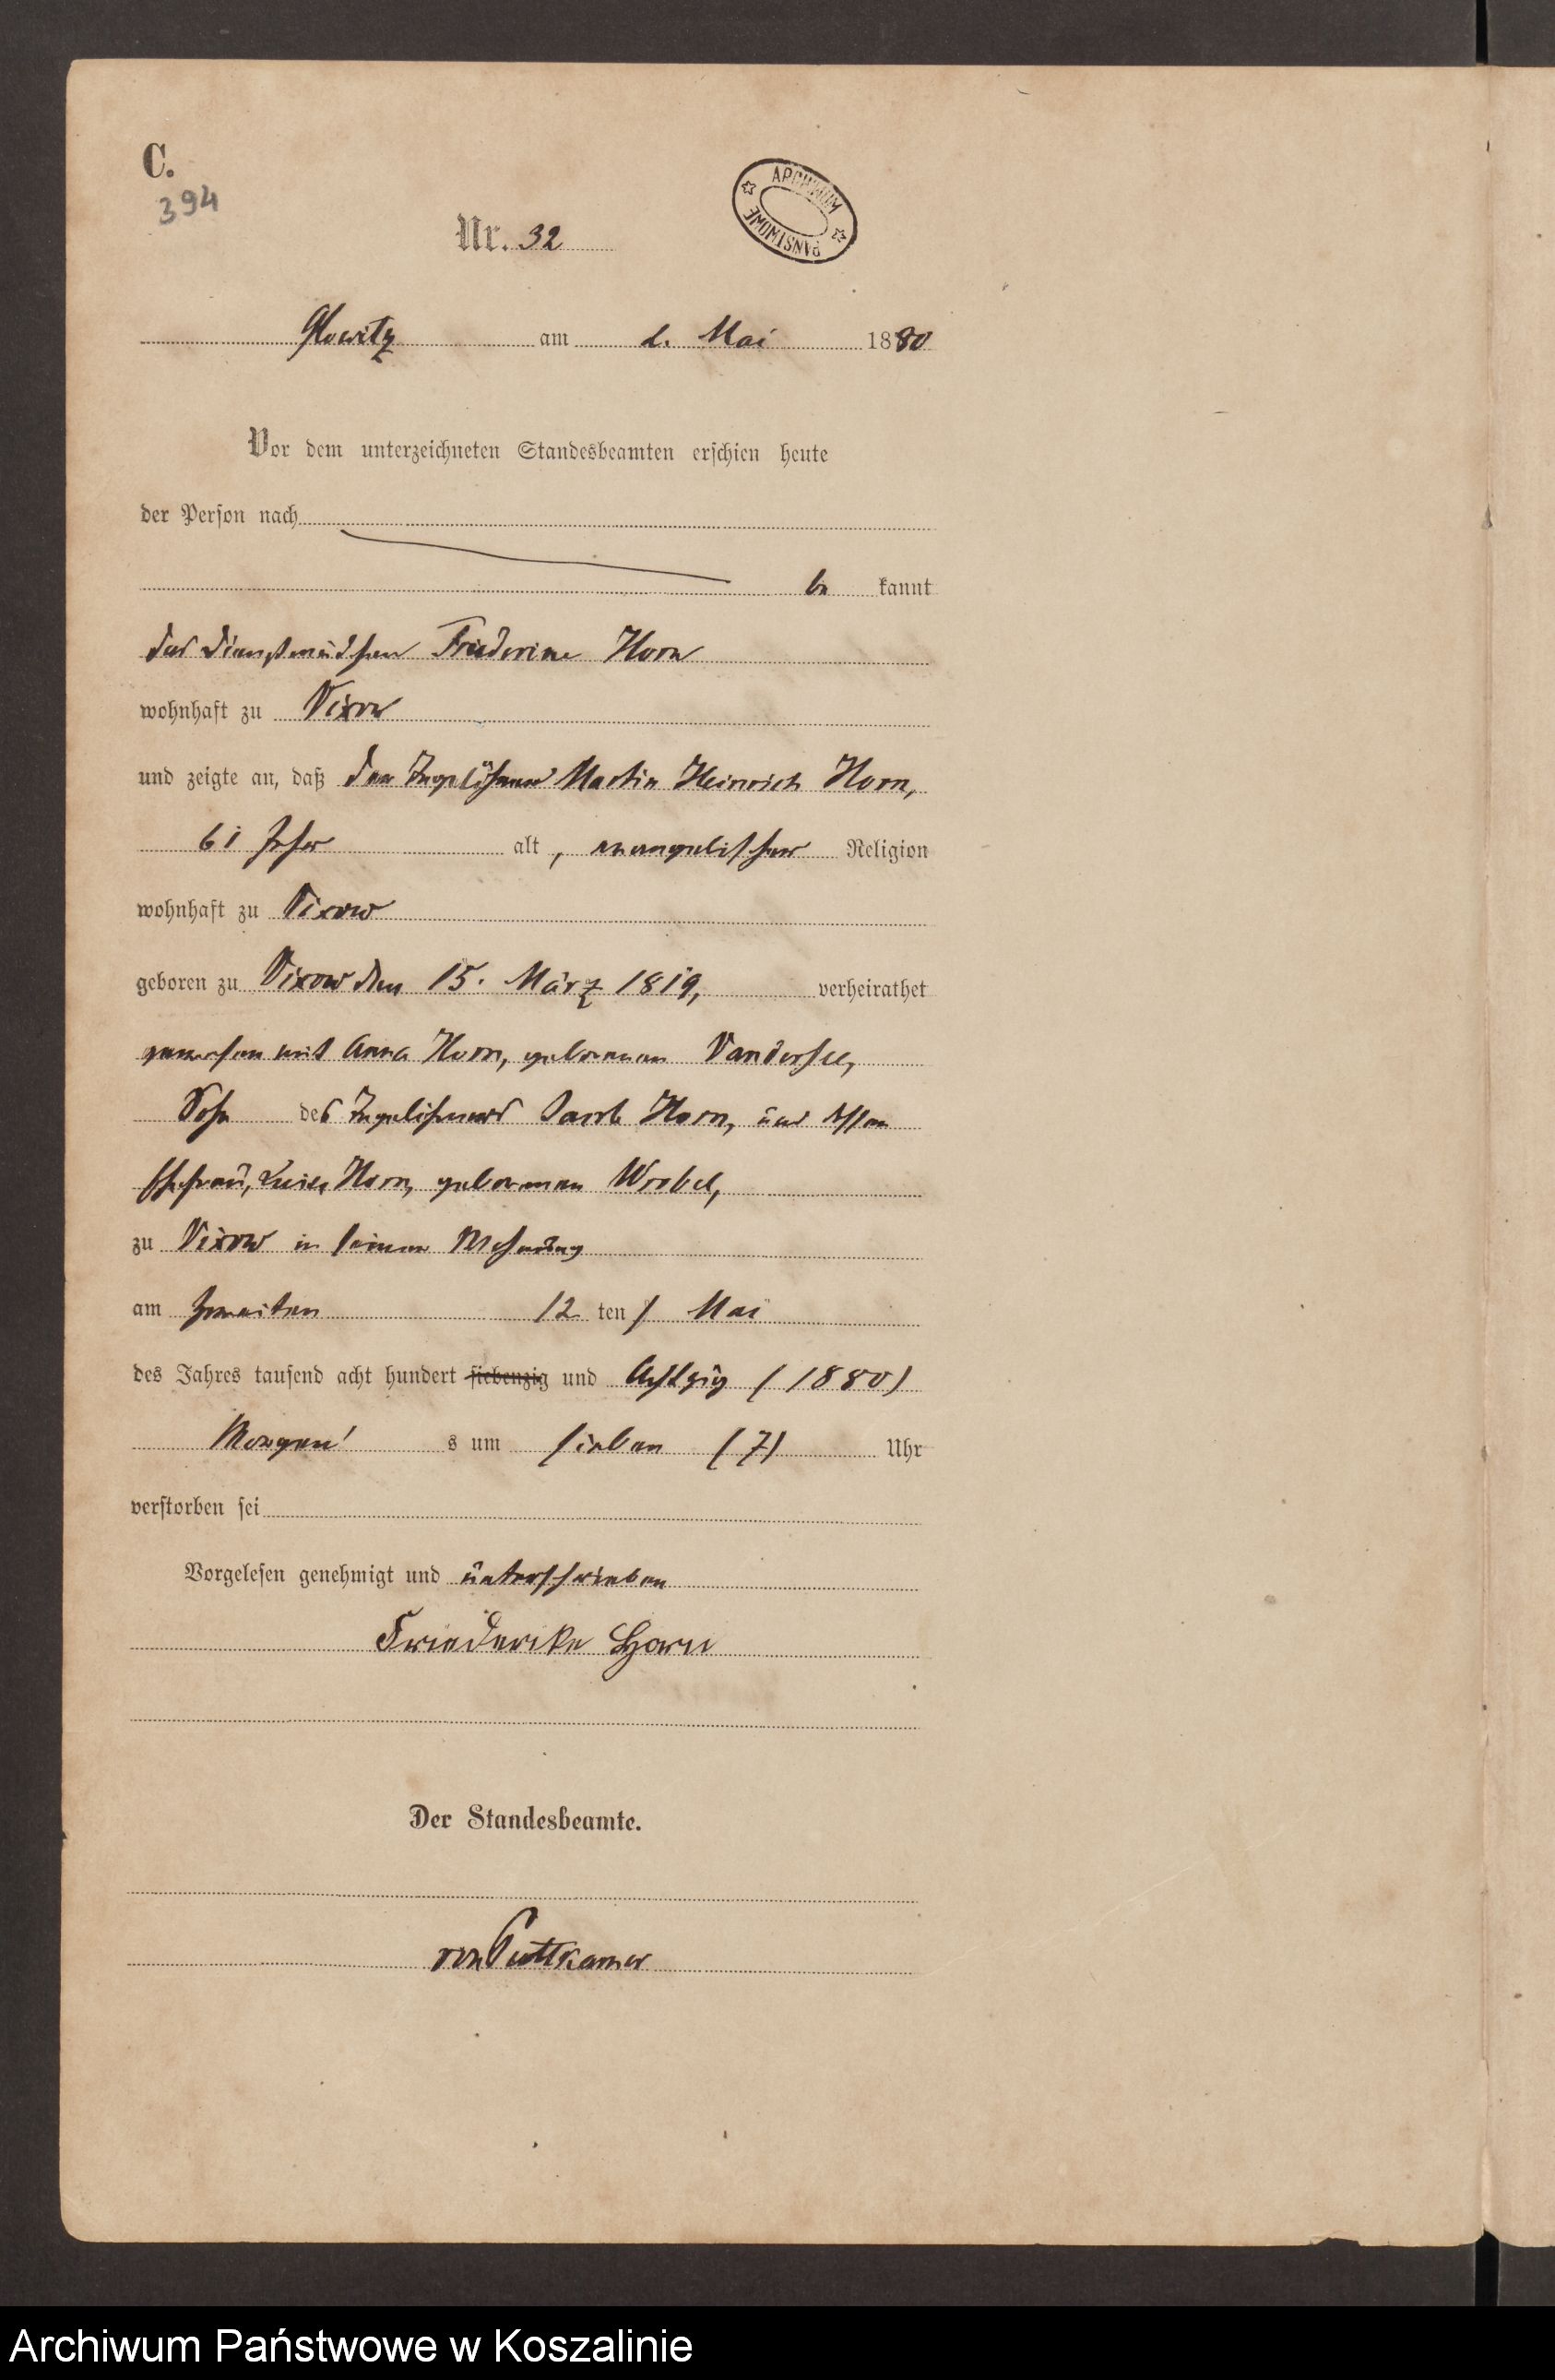 C.
394
Nr. 32
ARCHIWUM PAŃSTWOWE
Glowitz am 2. Mai 1880
Vor dem unterzeichneten Standesbeamten erschien heute
der Person nach
be kannt
das Dienstmädchen Friederike Horn
wohnhaft zu Vixow
und zeigte an, daß der Martin Heinrich Horn,
61 Jahr alt, evangelischer Religion
wohnhaft zu Vixow
geboren zu Vixow den 15. März 1819, verheirathet
gewesen mit Anna Horn, geborenen Vandersee,
Sohn des Jacob Horn, und dessen
Ehefrau, Luise Horn, geborenen Wrobel,
zu Vixow in seiner Wohnung
am zweiten (2 ten) Mai
des Jahres tausend acht hundert siebenzig und Achtzig (1880)
Morgen s um sieben (7) Uhr
verstorben sei
Vorgelesen genehmigt und unterschrieben
Friederike Horn
Der Standesbeamte.
von Puttkamer
Archiwum Państwowe w Koszalinie